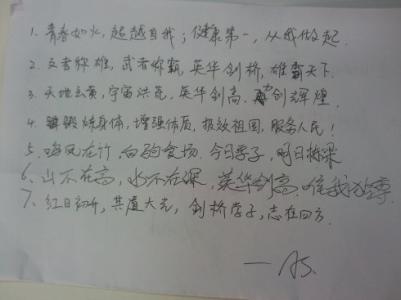 1. 青春如火,超越自我;健康第一,从我做起.
2. 文者称雄,武者称霸,英华剑桥,雄霸天下.
3. 天地玄黄,宇宙洪荒,英华剑高,创辉煌.
4. 锻炼身体,增强体质,报效祖国,服务人民!
5. 在计 向 会场.今日学子,明日栋梁
6. 山不在高,水不在深,英华剑高,唯我
7. 红日初升,其道大光,剑桥学子,志在四方.